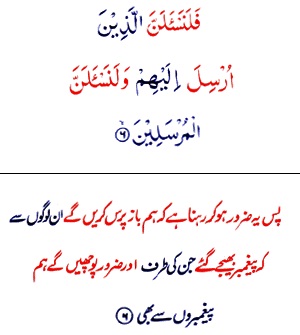 فَلَنَسْـَٔلَنَّ الَّذِيْنَ
اُرْسِلَ اِلَيْهِمْ وَلَنَسْـَٔلَنَّ
الْمُرْسَلِيْنَ ۙ۶
پس یہ ضرور ہو کر رہنا ہے کہ ہم باز پرس کریں گے ان لوگوں سے
کہ پیغمبر بھیجے گئے جن کی طرف اور ضرور پوچھیں گے ہم
پیغمبروں سے بھی ۶